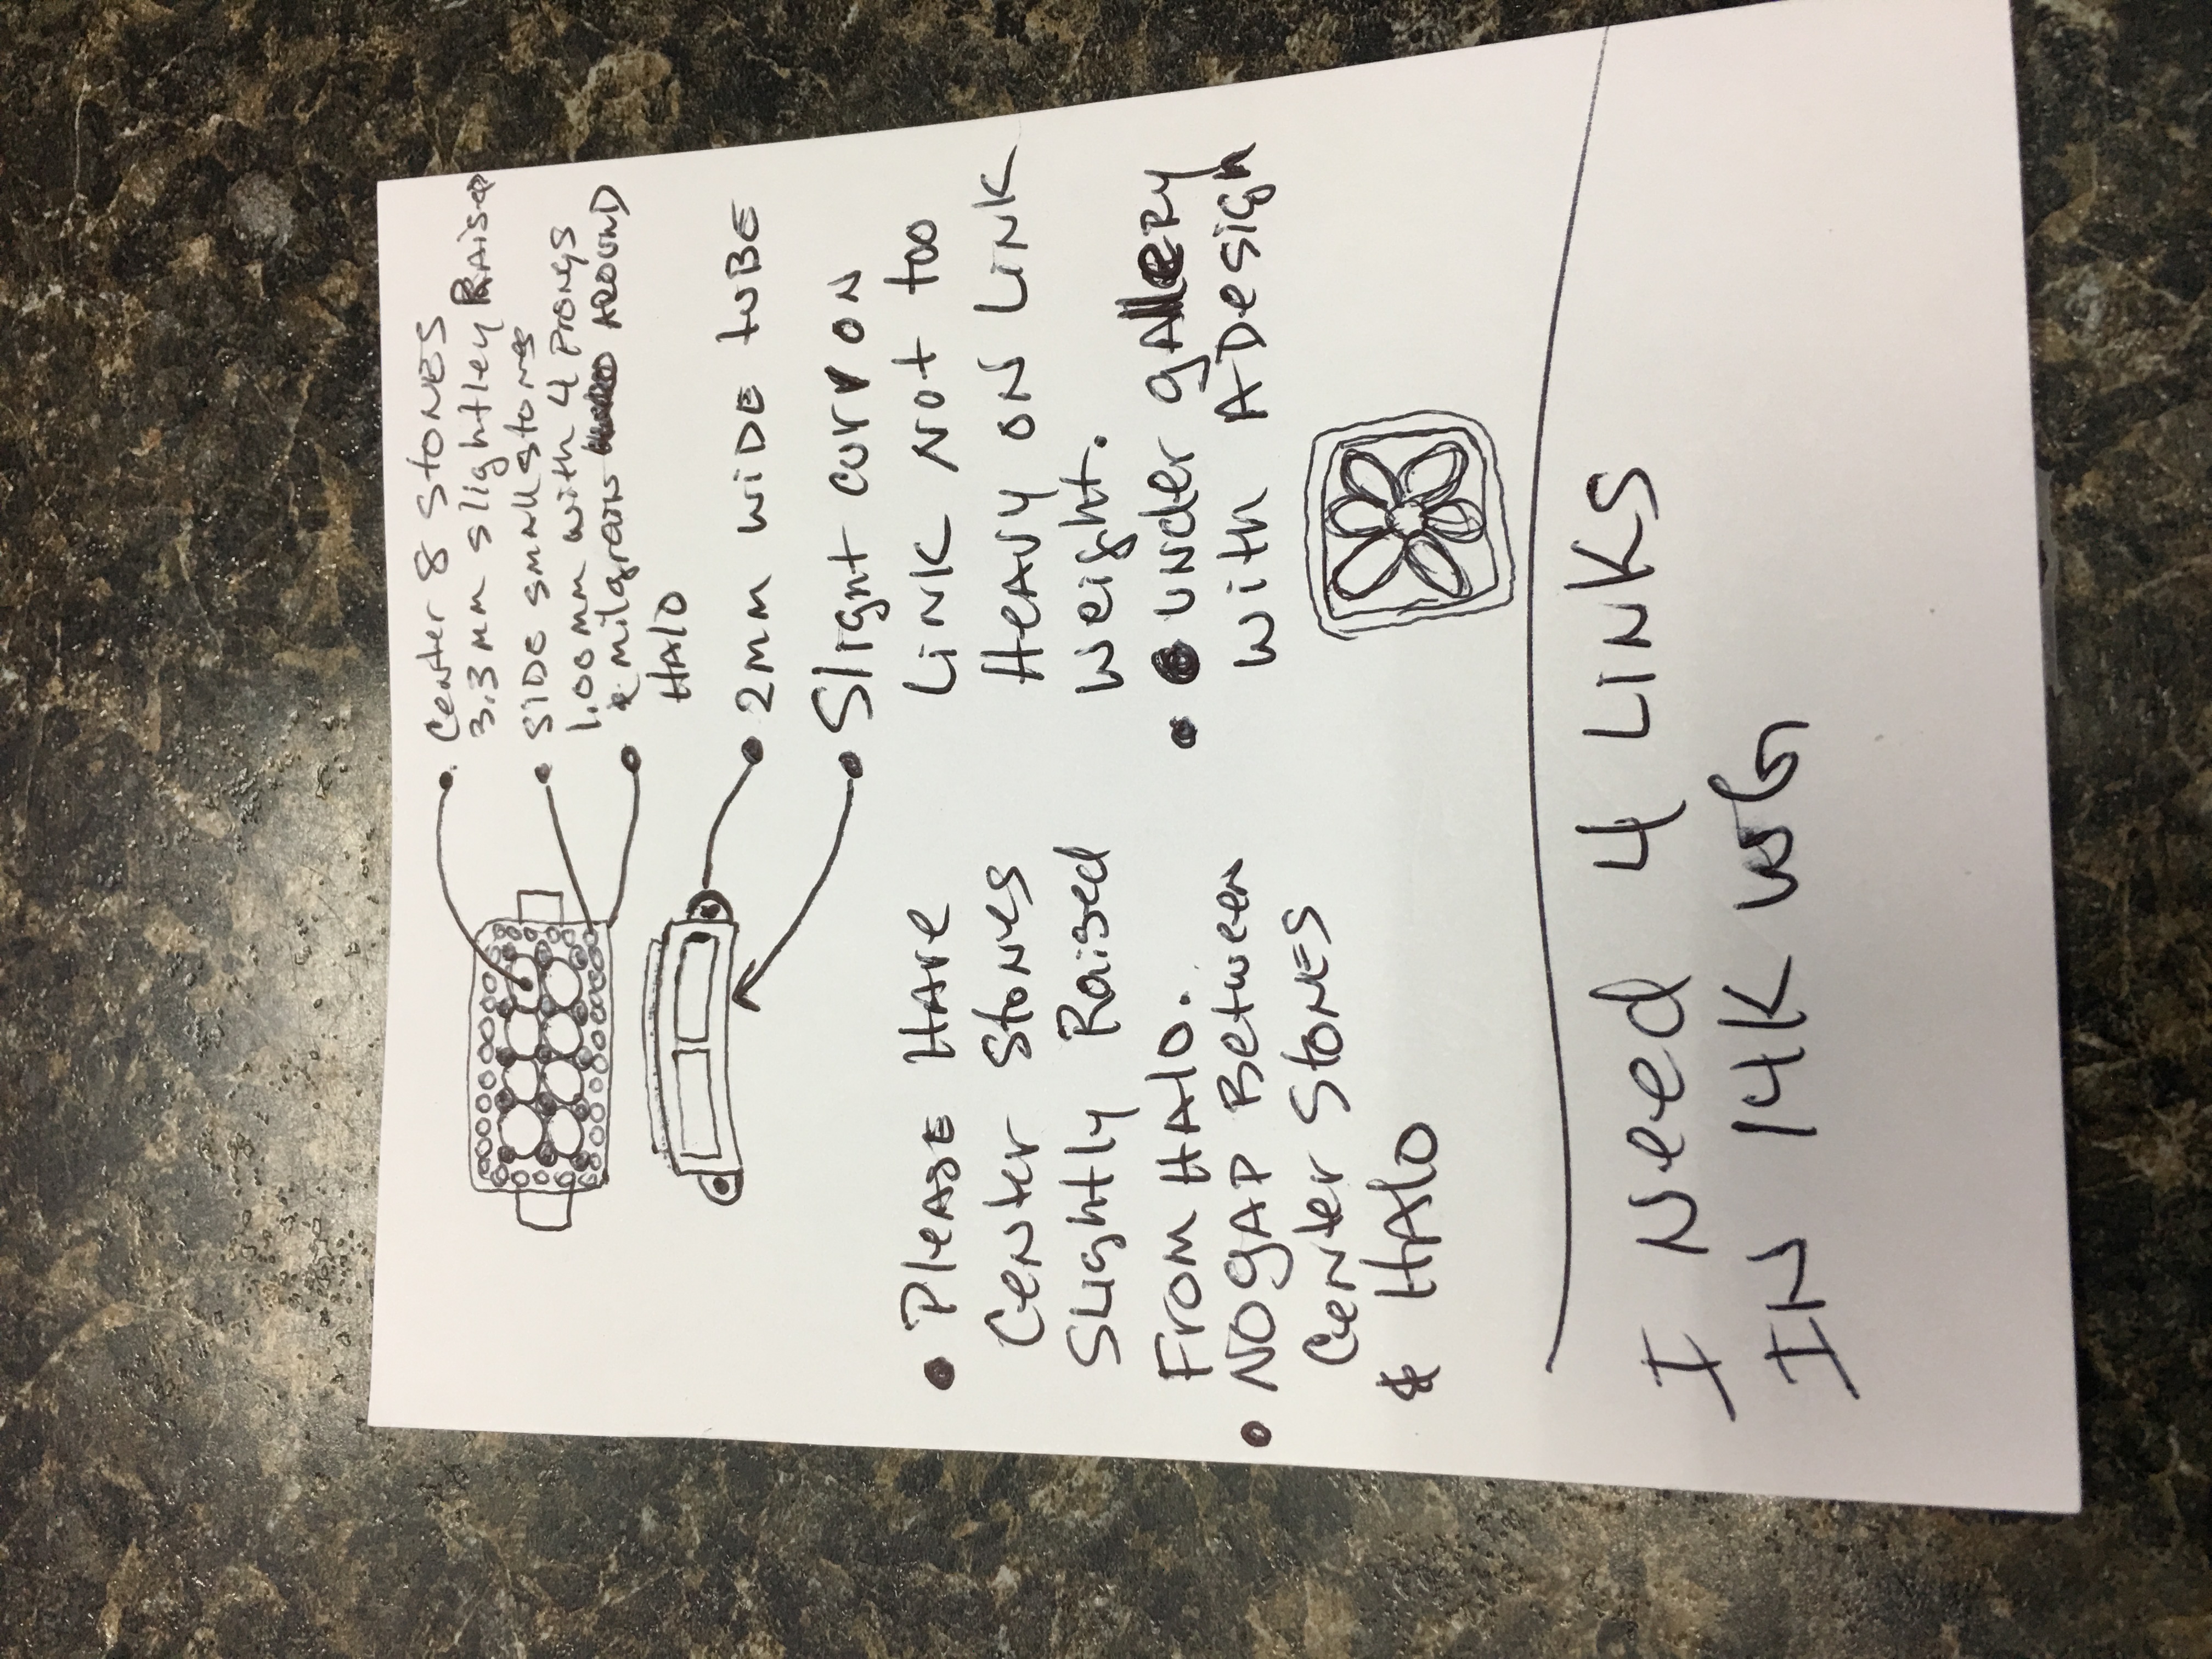 Center 8 STONES
3.3mm slightley Raised
SIDE SMALL stones
1.00mm with 4 Prongs
& milgrain AROUND
HAlo
2mm WIDE tUBE
Slight curv ON
LINK Not too
HeAvy ON LINK
Weight.
UNder gAlleRy
With A Design
PleASE HAve
Center Stones
Slightly Raised
From HAlo.
NO gAP Between
Center STONES
& HAlo
I Need 4 LINKS
IN 14K WG